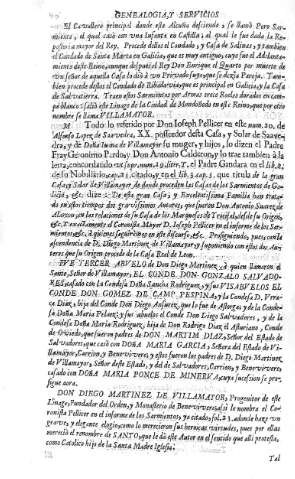 GENEALOGIA, Y SERVICIOS
El Cavallero principal donde este Alcuña desciende se llamò Pero Sar-
miento, el qual casò con una Infanta en Castilla, al qual le fue dada la Re-
posteria mayor del Rey. Procede dellos el Condado, y Casa de Salinas, y tambien
el Condado de Santa Marta en Galicia, que es muy antiguo,
miento deste Reino, porque del qual el Rey Don Enrique el Quarto por muerte de
un señor de aquella Casa la diò à un Privado suyo, que se dezia Pareja. Tam-
bien procede dellos el Condado de Ribadavia que es principal en Galicia, y la Casa
de Salvatierra. Traen estos Sarmientos por Armas treze Roeles dorados en cam-
po
nombre se llama VILLAMAYOR.
M Todo lo referido por Don Joseph Pellicer en este num. 20. de
Alfonso Lopez de Saavedra, XX. posseedor desta Casa, y Solar de Saave-
dra, y de Doña Inès de Villamayor su muger, y hijos, lo dizen el Padre
Fray Geronimo Pardo, y Don Antonio Calderon, y lo trae tambien à la
letra, concordando
su Nobiliario, cap. 21. citado, y en el lib. 3. cap. 3. que titula de la gran
Casa, y Solar de Villamayor, de donde proceden las Casas de los Sarmientos de Gali-
cia, &c. dize: De esta gran Casa, y Excelentissima Familia han trata-
do en estos tiempos dos gravissimos Autores, que fueron Don Antonio Suarez de
Alarcon, en las relaciones de su Casa de los Marqueses de Trocifal, desde su Origen,
&c. y el Coronista Mayor D. Joseph Pellicer en el informe de los Sar-
mientos, &c. à quienes seguirèmos en este discurso, &c. Prosiguiendo, pues, con la
ascendencia de D. Diego Martinez de Villamayor
tores que su Origen procede de la Casa Real de Leon.
FUE TERCER ABUELO de Don Diego Martinez, à quien llamaron el
Santo, Señor de Villamayor, EL CONDE DON GONZALO SALVADO-
RES, casado con la Condesa Doña Sancha Rodriguez, y sus VISABUELOS EL
CONDE DON GOMEZ DE CAMP-DESPINA, y la Condesa D. Vrra-
ca Diaz, hija del Conde Don Diego Ansurez, que lo fue de Astorga, y de la Conde-
sa Doña Maria Pelaez; y sus Abuelos el Conde Don Diego Salvadores, y de la
Condesa Doña Maria Rodriguez, hija de Don Rodrigo Diaz el Asturiano, Conde
de Oviedo, que fueron padres de DON MARTIN DIAZ, Señor del Estado de
Salvadores, que casò con DOÑA MARIA GARCIA, Señora del Estado de Vi-
llamayor, Carrion, y Benevivere, y estos fueron los padres de D. Diego Martinez
de Villamayor, Señor deste Estado, y del de Salvadores, Carrion, y Benevivere,
casado con DOÑA MARIA PONCE DE MINERVA, cuya sucession se pro-
sigue aora.
DON DIEGO MARTINEZ DE VILLAMAYOR, Progenitor de este
Linage, Fundador del Orden, y Monasterio de Benevivere, assi lo nombra el Co-
ronista Pellicer en el informe de los Sarmientos, ya citado, fol. 21. adonde haze gra-
ve, y elegante elogio, como lo merecieron sus heroicas virtudes, pues por ellas
mereciò el renombre de SANTO, que le dà este Autor en el sentido que alli protesta,
como Catolico hijo de la Santa Madre Iglesia.
Tal